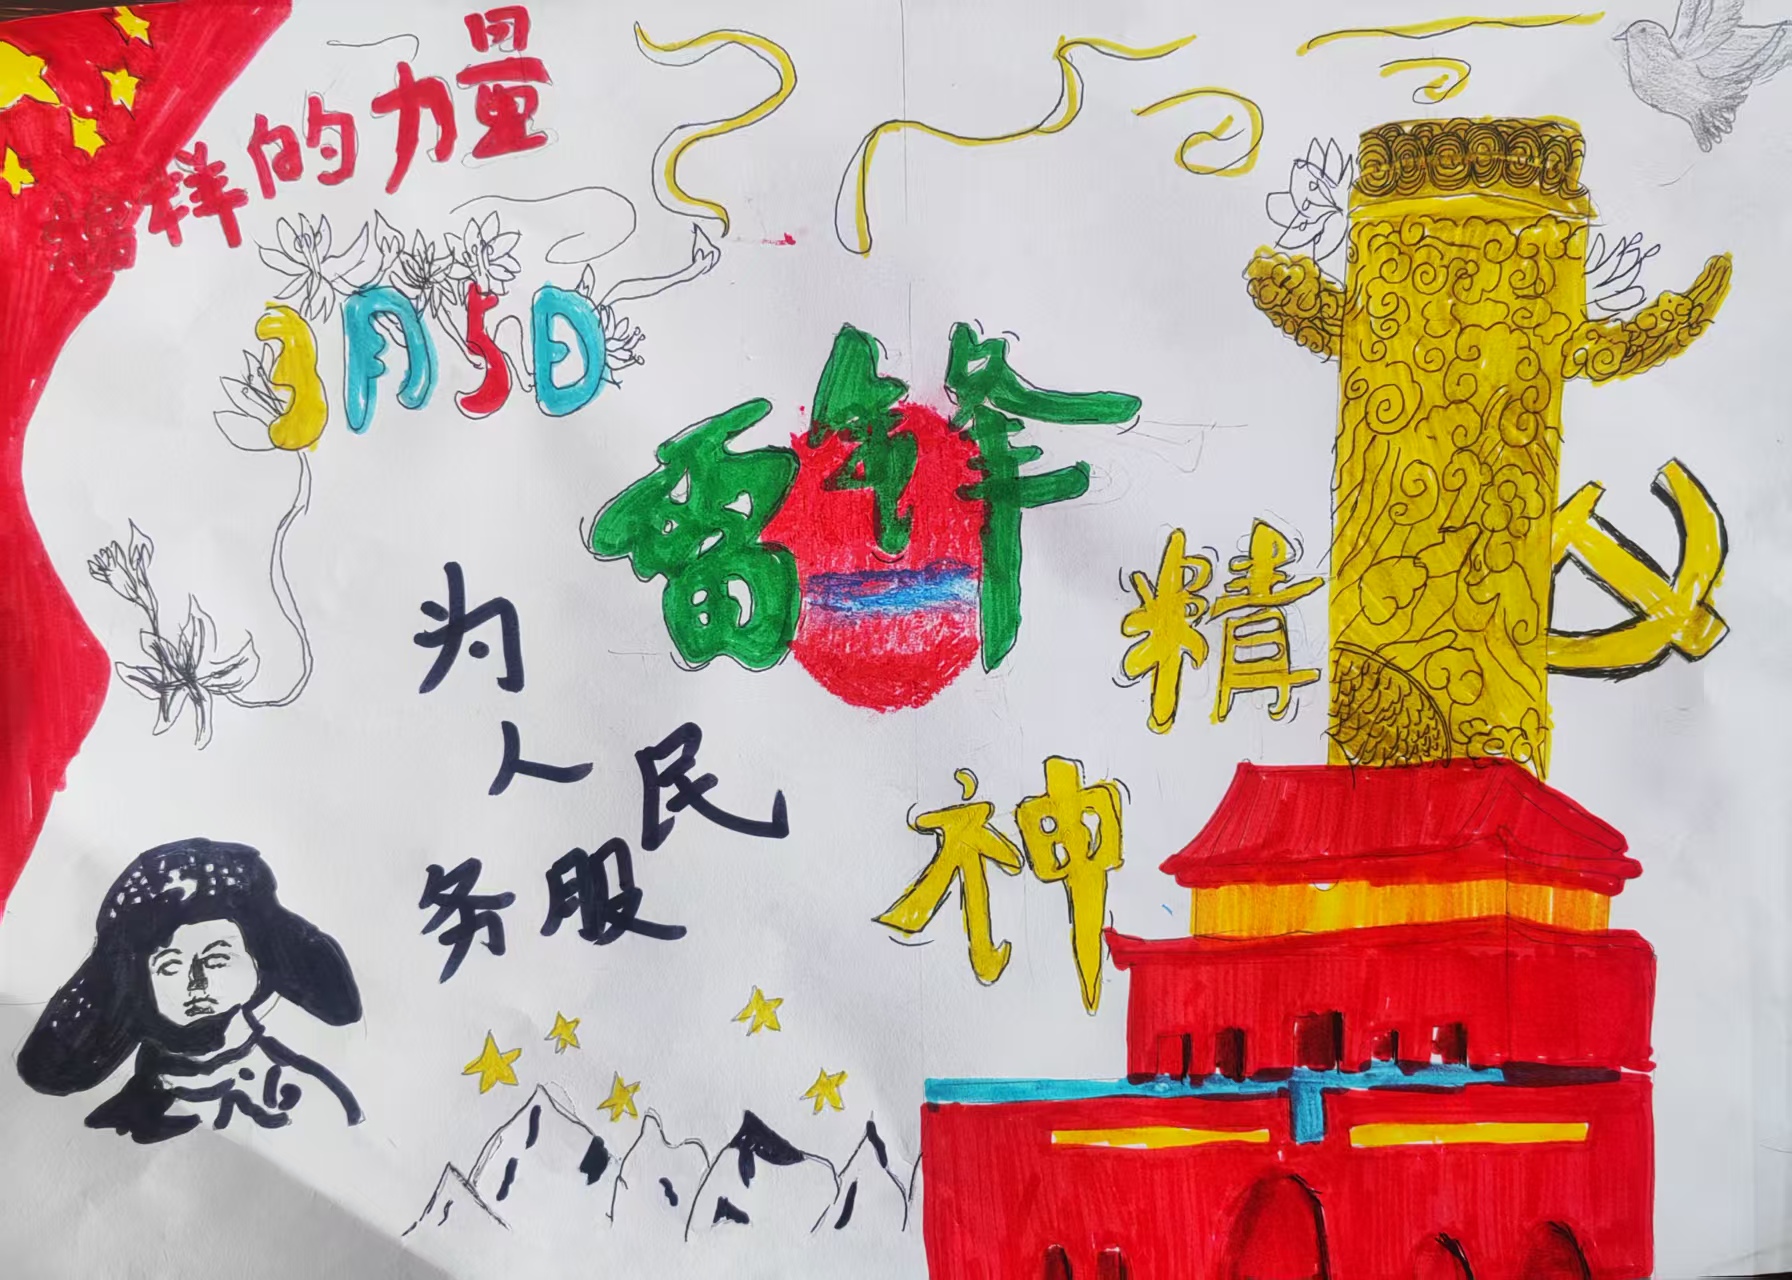 榜样的力量
3月5日
雷锋
精
神
为
人民
务服